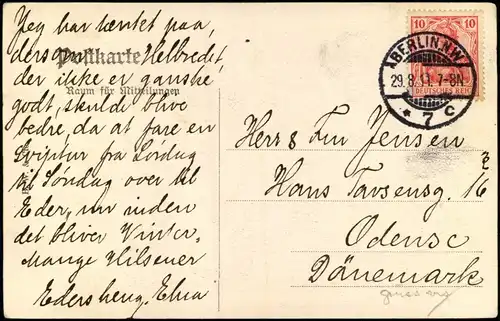 Jeg har ventet paa,
Postkarte
ders Helbredet,
der ikke er ganske
godt, skulde blive
Raum für Mitteilungen
bedre, da at fare en
fra Lørdag
til Søndag over til
Eder, nu inden
det bliver Vinter.
Mange Hilsener
Eders heng. Elna
10 10
DEUTSCHES REICH
BERLIN N.W.
29.8.11. 7-8N.
* 7 c
Herr S Jensen
Hans Tavsensg. 16
Odense
Dänemark